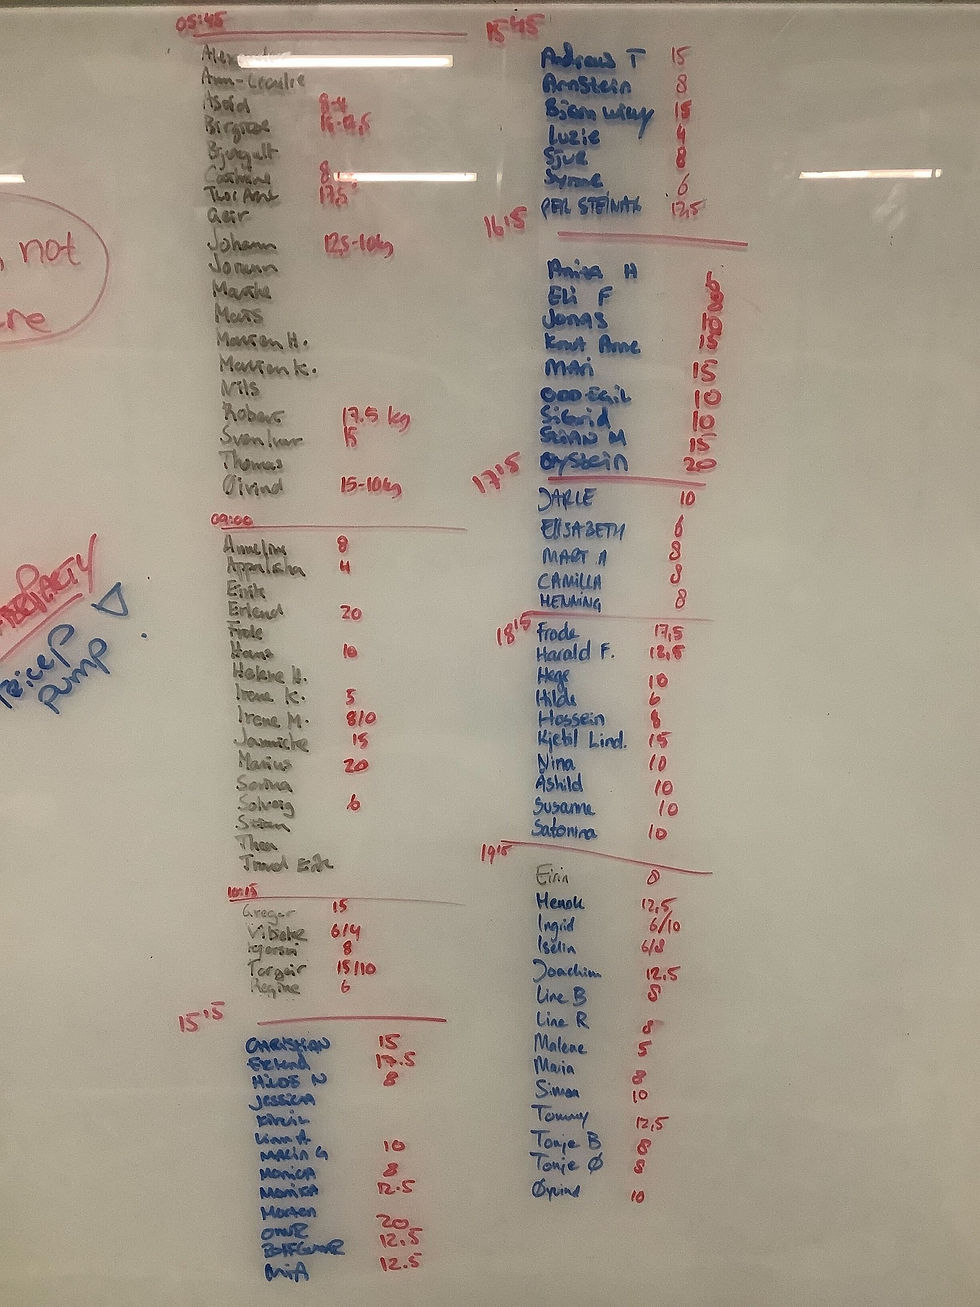 05:45
Ann-Cecilie
Astrid 8-4
Birgitte 15-12,5
Bjørgulf
Cathrine 8
Thor Arne 17,5
Geir
Johann 12,5-10kg
Jorunn
Marthe
Mats
Marien H.
Marien K.
Nils
Robert 17.5 kg
Svein Ivar 15
Thomas
Øivind 15-10kg
09:00
Anneline 8
Appalisha 4
Eirik
Erlend 20
Frode
Hans 10
Helene H.
Irene K. 5
Irene M. 8/10
Jannicke 15
Marius 20
Sorina
Solveig 6
Stian
Thea
Trond Erik
10:15
Gregor 15
Vibeke 6/4
8
Torgeir 15/10
Regine 6
15:15
CHRISTIAN 15
Erlend 17.5
8
JESSICA
Linn A
MALIN G 10
MONICA 8
MONIKA 12.5
Morten
ONUR 20
12.5
MIA 12.5
15:45
Andreas T 15
Arnstein 8
Bjørn Willy 15
Luzie 4
Sjur 8
Synne 6
PER STEINAR 12,5
16:15
Anita H
Eli F
Jonas 10
Knut Arne 15
MARI 15
ODD EGIL 10
Sigrid 10
STIAN M 15
Øystein 20
17:15
JARLE 10
ELISABETH 6
MARI A 8
CAMILLA 8
HENNING 8
18:15
Frode 17,5
Harald F. 12,5
Hege 10
Hilde 6
Hossein 8
Kjetil Lind. 15
Nina 10
Åshild 10
Susanne 10
Satonina 10
19:15
Eirin 8
Henok 12,5
Ingrid 6/10
Iselin 6/8
Joachim 12,5
Line B 8
Line R 8
Malene 5
Maria 8
Simon 10
Tommy 12,5
Tonje B 8
Tonje Ø 8
Øyvind 10
not
pump